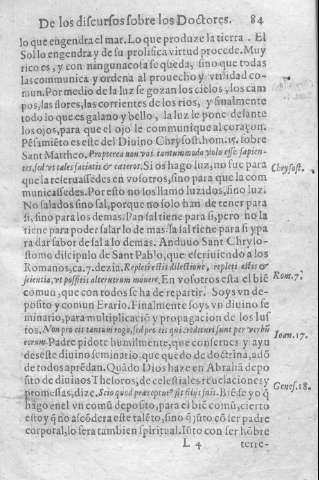 De los discursos sobre los Doctores. 84
lo que engendra el mar. Lo que produze la tierra. El
Sol lo engendra y de su prolifica virtud procede. Muy
rico es, y con ninguna cosa se queda, sino que todas
las communica y ordena al prouecho y vtilidad co-
mun. Por medio de la luz se gozan los cielos, los cam
pos, las flores, las corrientes de los rios, y finalmente
todo lo que es galano y bello, la luz le pone delante
los ojos, para que el ojo le comunique al coraçon.
Pēsamiēto es este del Diuino Chrysost. hom. 15. sobre
Sant Mattheo. Propterea non vos tantummodo volo esse sapien-
tes, sed vt tales faciatis & cæteros. Si os hago luz, no fue para
Chrysost.
que la reseruassedes en vosotros, sino para que la com
municassedes. Por esto no os llamo luzidos, sino luz.
No salados sino sal, porque no solo han de tener para
si, sino para los demas. Pan sal tiene para si, pero no la
tiene para poder salar lo de mas: la sal tiene para si y pa
ra dar sabor de sal a lo demas. Anduuo Sant Chryso-
stomo discipulo de Sant Pablo, que escriuiendo a los
Romanos, ca. 7. dezia. Repleti estis dilectione, repleti estis &
Rom. 7.
scientia, vt possitis alterutrum monere. En vosotros esta el biē
comun, que con todos se ha de repartir. Soys vn de-
posito y comun Erario. Finalmente soys vn diuino se
minario, para multiplicació y propagacion de los jus
tos. Non pro eis tantum rogo, sed pro eis qui credituri sunt per verbū
Ioan. 17.
eorum. Padre pidote humilmente, que conserues y ayu
des este diuino seminario que quedo de doctrina, adō
de todos aprēdan. Quādo Dios haze en Abrahā depo
sito de diuinos Thesoros, de celestiales reuelaciones y
promessas, dize. Scio quod præceptur' sit filijs suis. Biē se yo q̄
Genes. 18.
hago en el vn comū deposito, para el biē comū, cierto
estoy q̄ no ascōdera este talēto, sino q̄ jūto cō ser padre
corporal, lo sera tambien spiritual. Jūto con ser hōbre
L 4 terre-